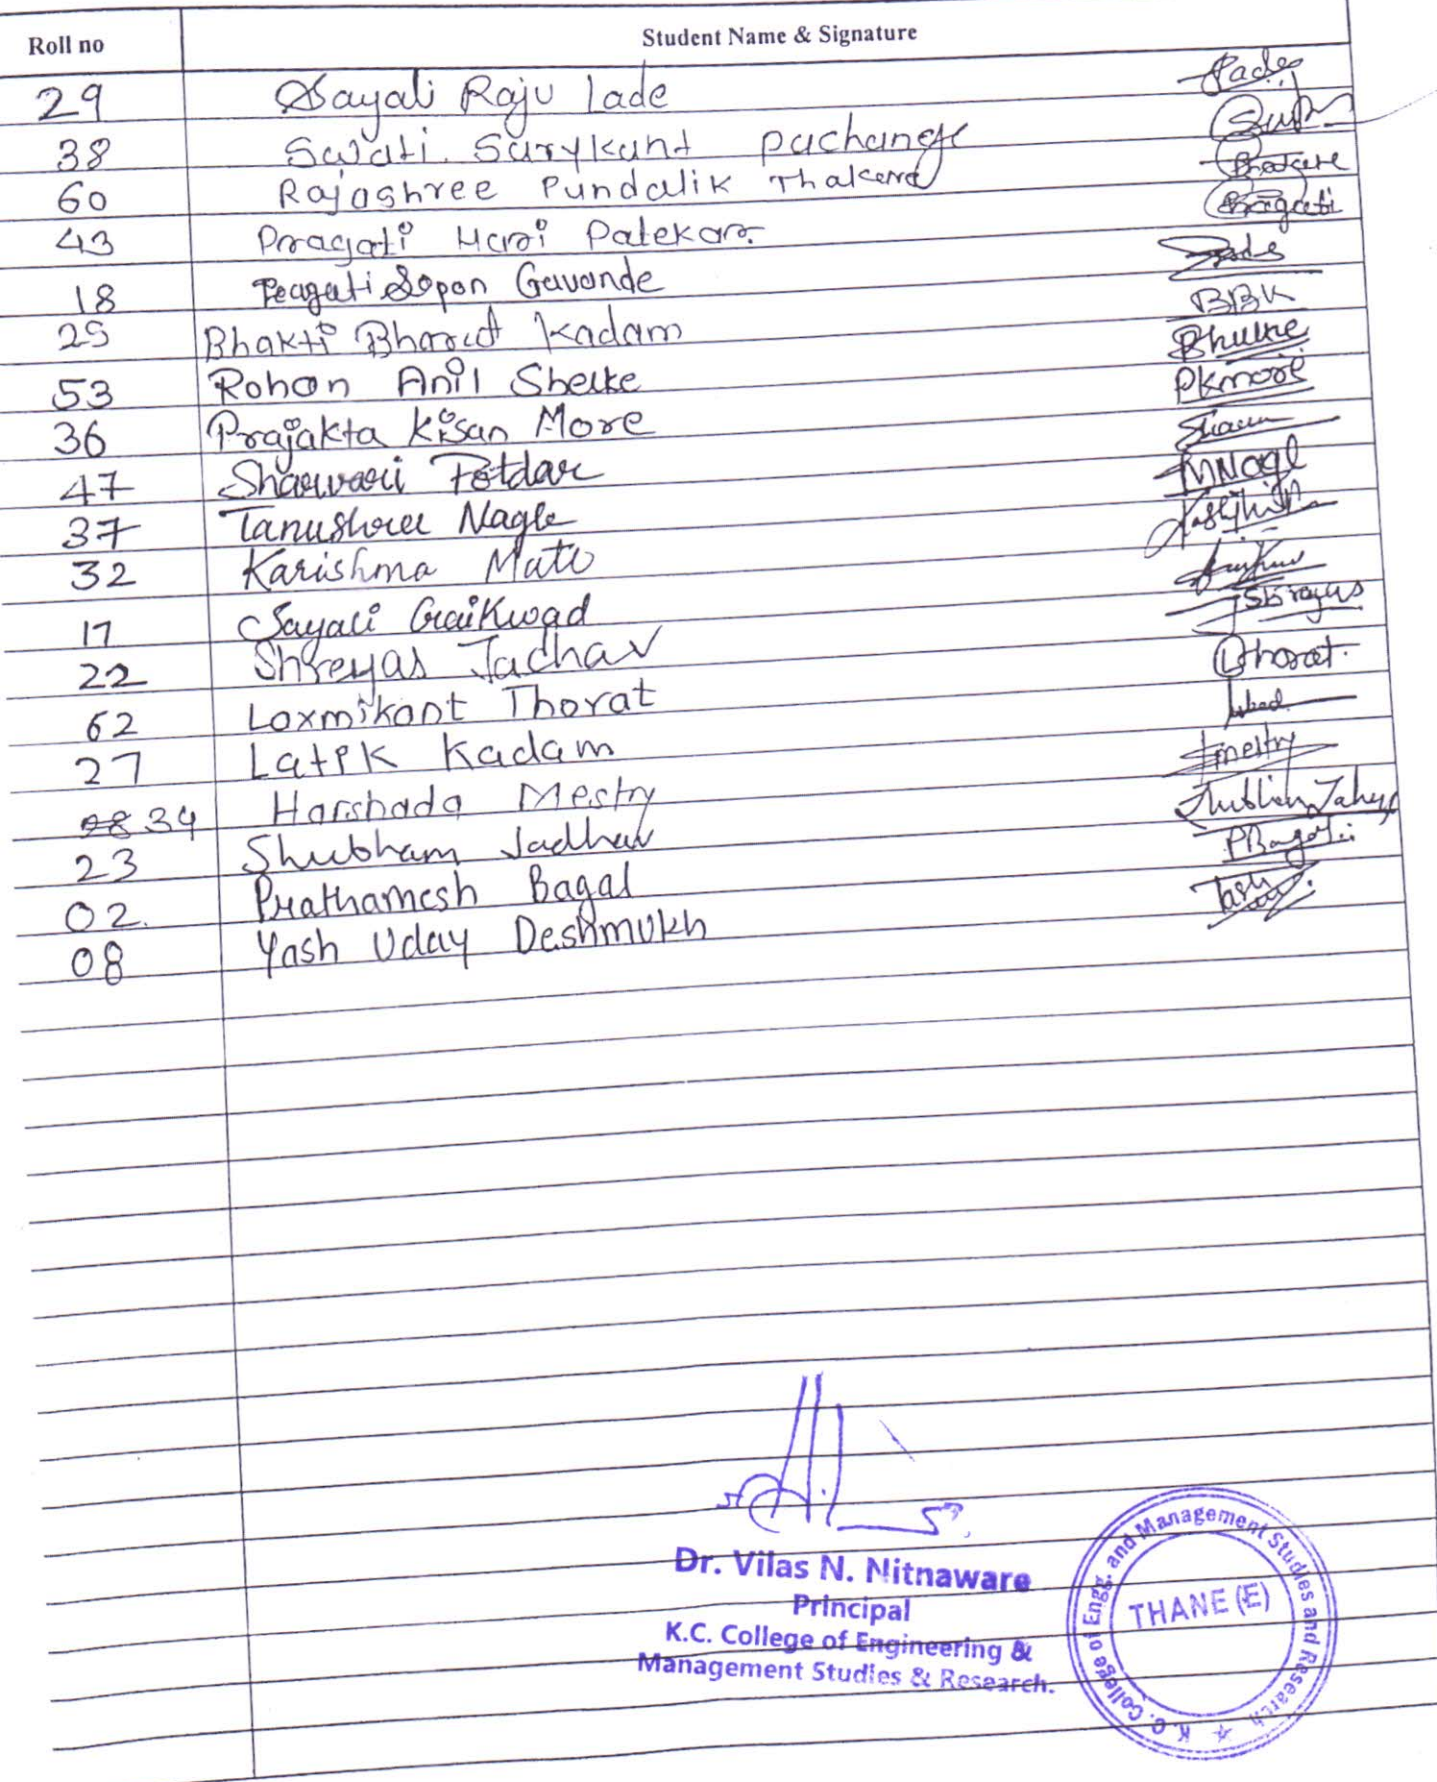 Roll no Student Name & Signature
29 Sayali Raju lade
38 Swati. Surykant pachange
60 Rajashree Pundalik Thakare Bhakare
43 Pragati Hari Palekar. Pragati
18 Pragati Sopan Gavande
25 Bhakti Bharat Kadam BBK
53 Rohan Anil Shelke Bhulke
36 Prajakta Kisan More PKmore
47 Sharwari Potdar
37 Tanushree Nagle MNagl
32 Karishma Mate
17 Sayali Gaikwad
22 Shreyas Jadhav Shreyas
62 Laxmikant Thorat Thorat.
27 Latik Kadam
28 34 Harshada Mestry Hmestry
23 Shubham Jadhav
02. Prathamesh Bagal PBagal
08 Yash Uday Deshmukh Yash
Dr. Vilas N. Nitnaware
Principal
K.C. College of Engineering &
Management Studies & Research.
K.C. College of Engg. and Management Studies and Research
THANE (E)